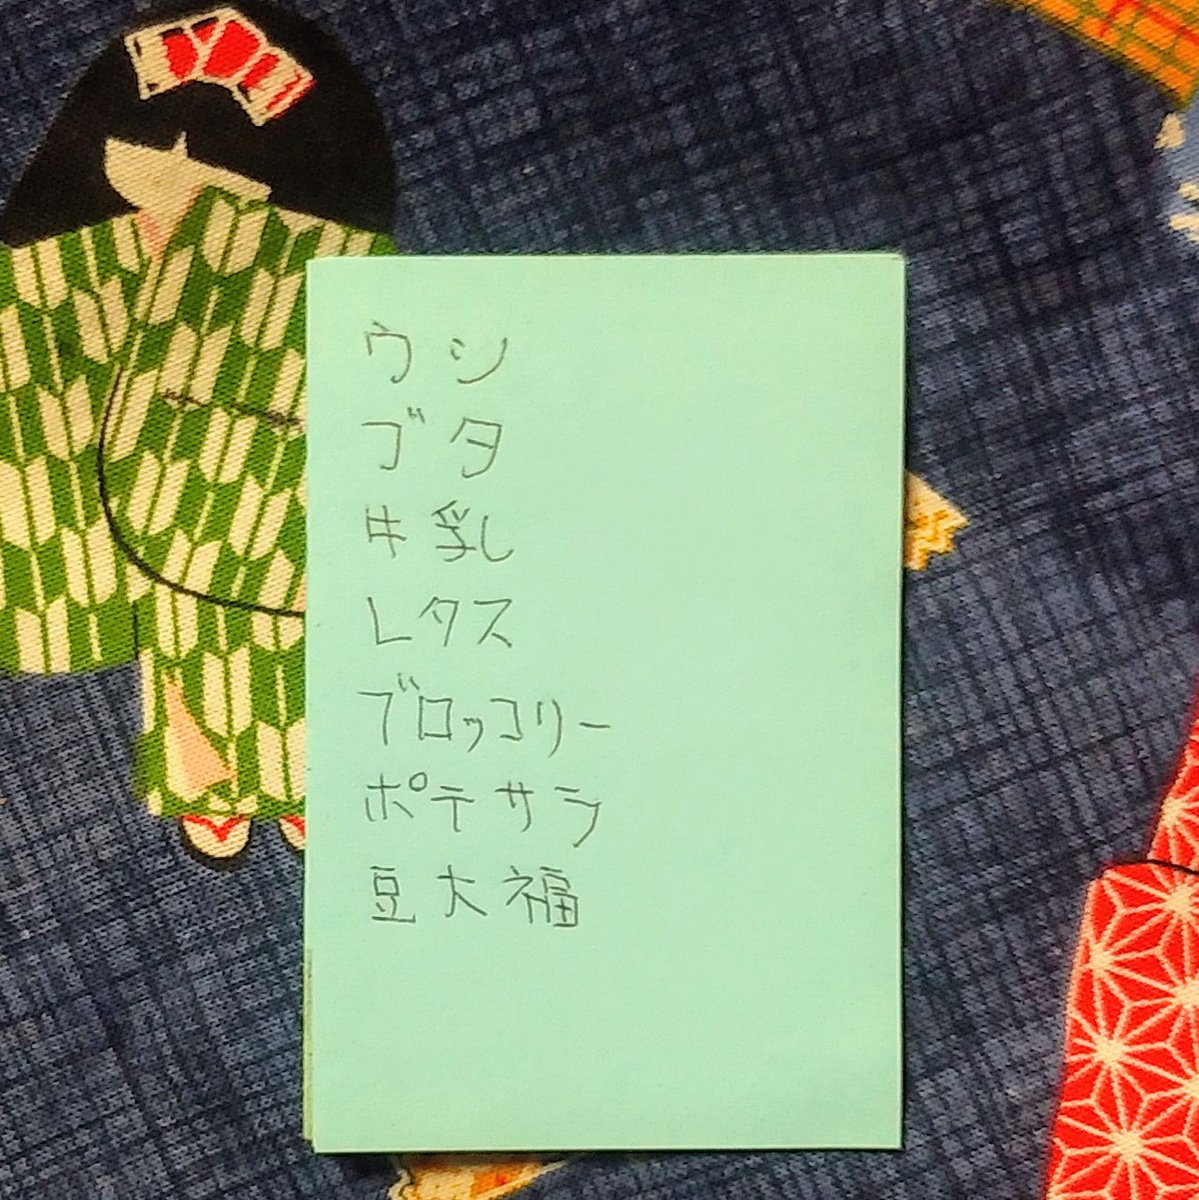 ウシ
ゴタ
牛乳
レタス
ブロッコリー
ポテサラ
豆大福